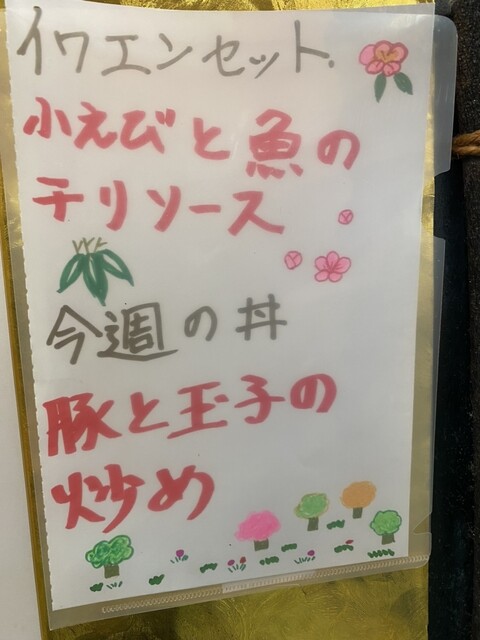 イワエンセット.
小えびと魚の
チリソース
今週の丼
豚と玉子の
炒め